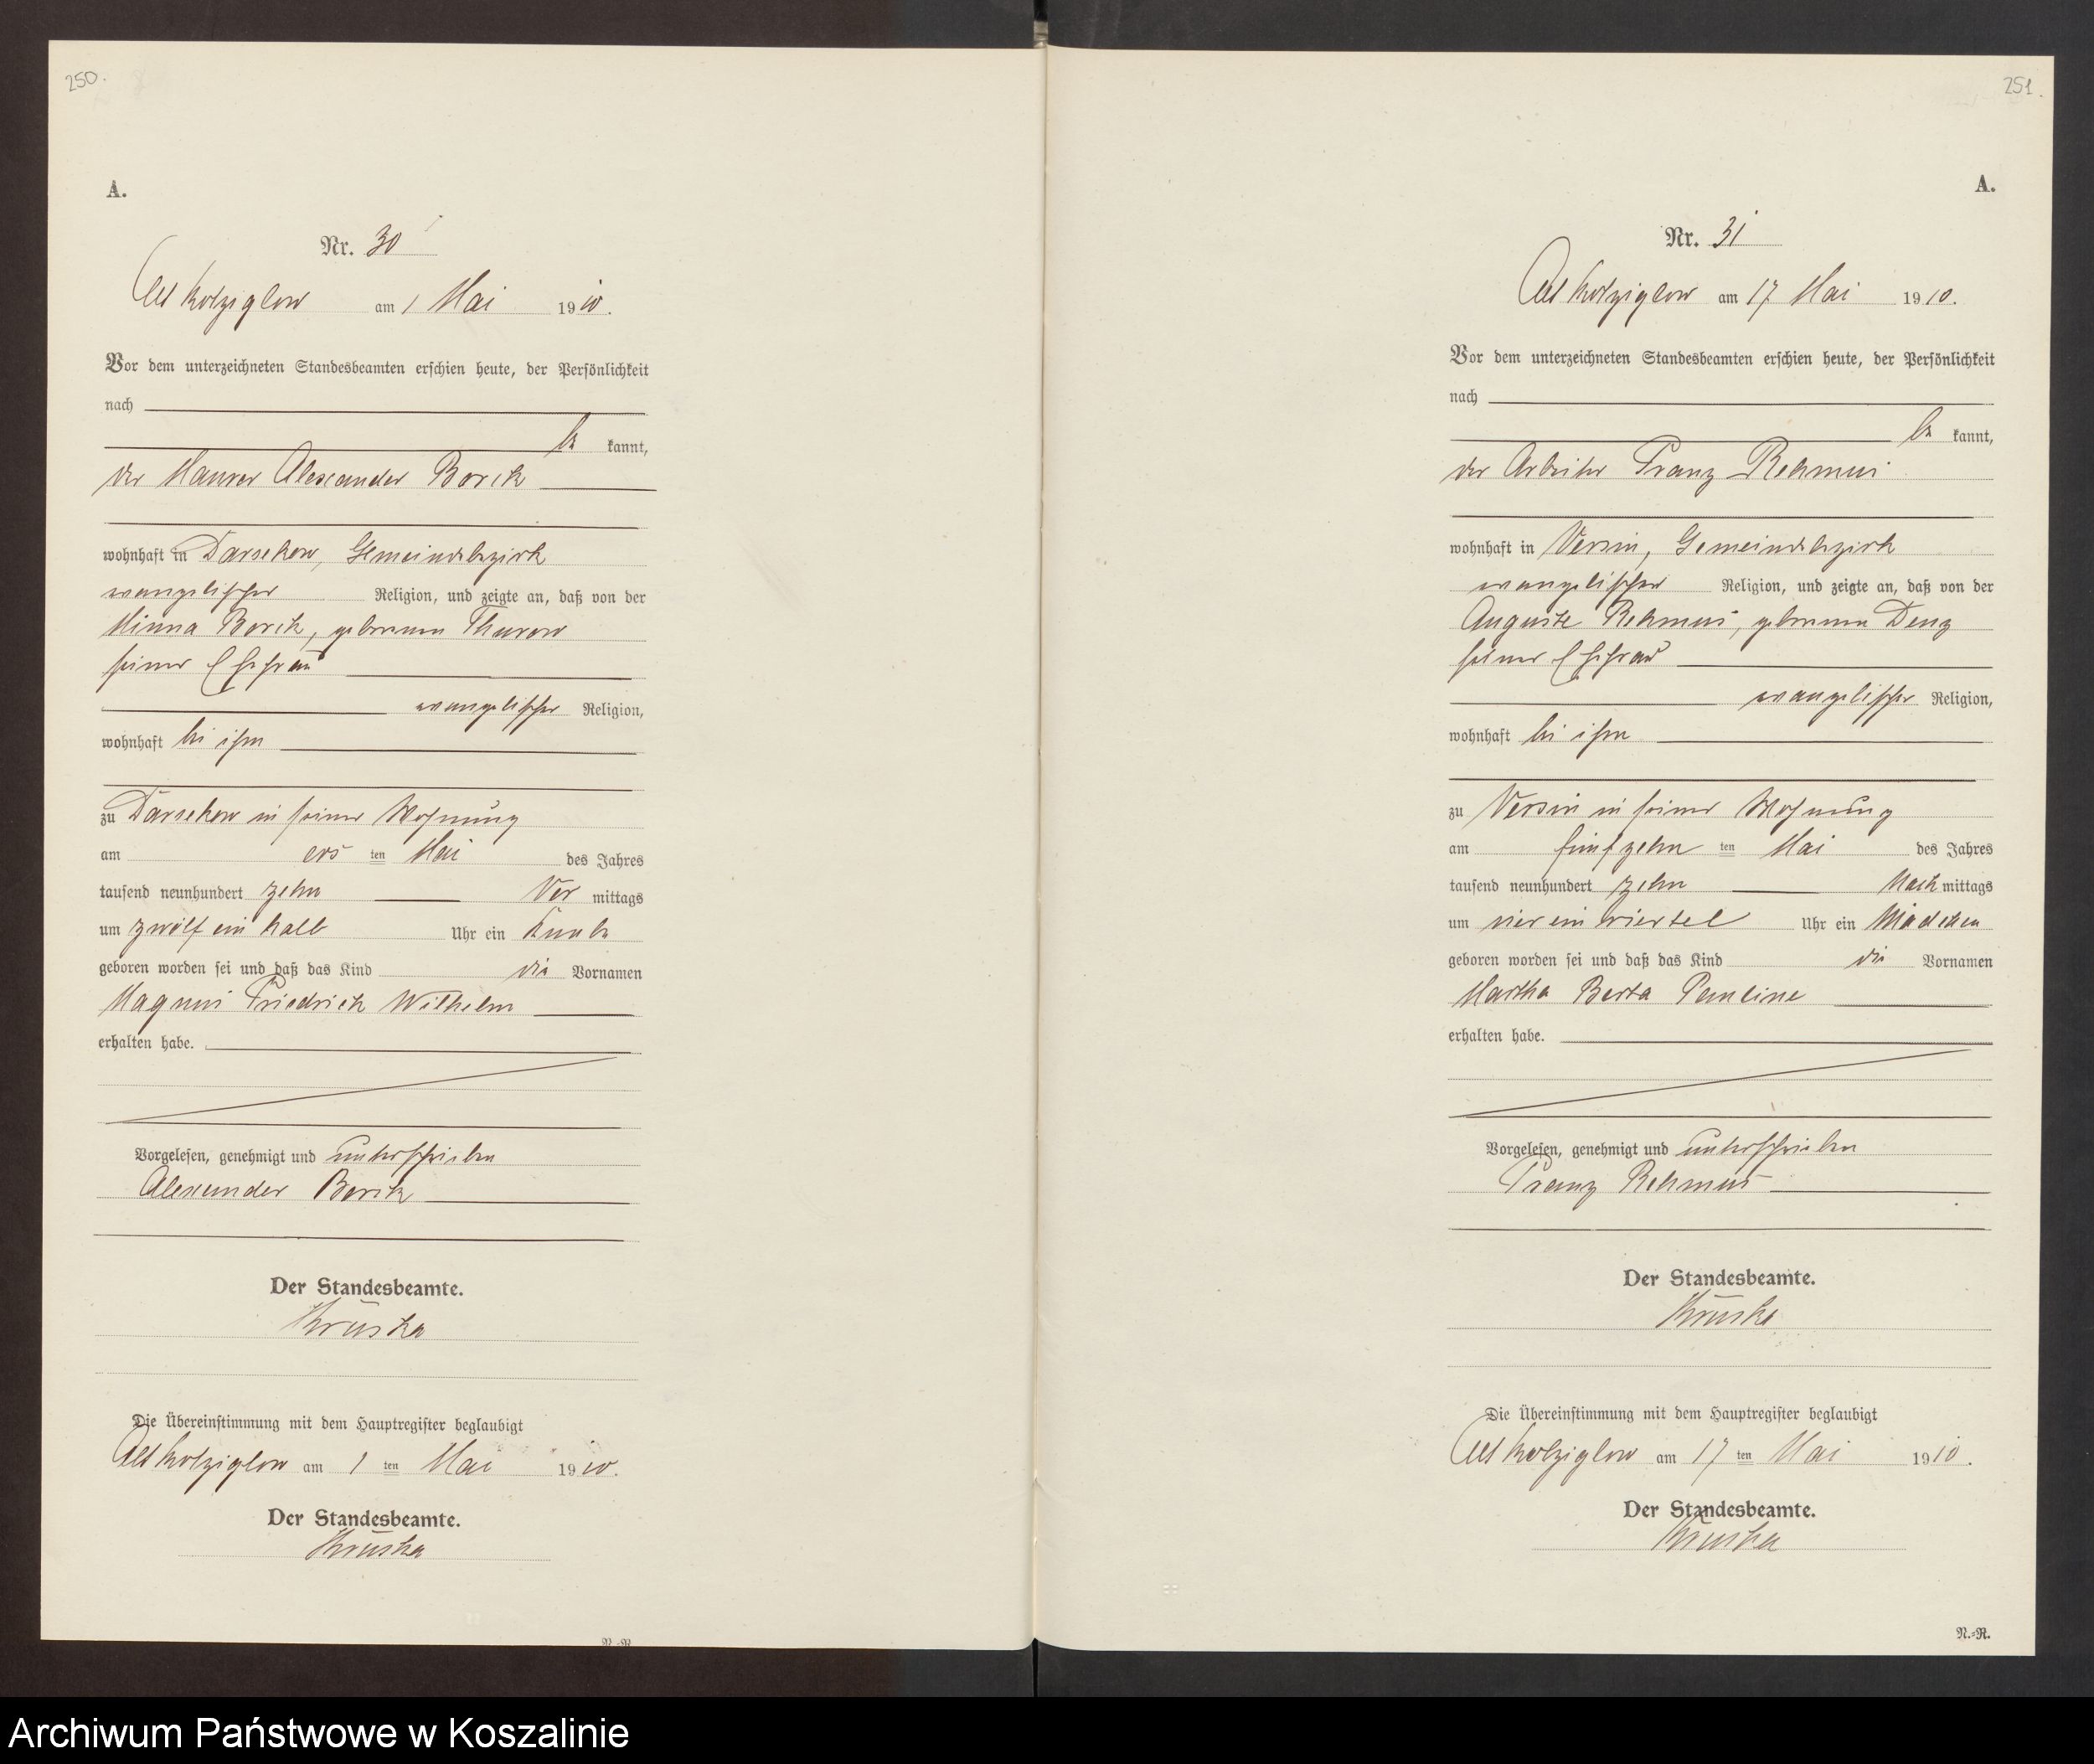 250.
A.
Nr. 30
Alt Kolziglow am 1 Mai 1910.
Vor dem unterzeichneten Standesbeamten erschien heute, der Persönlichkeit
nach
be kannt,
der Maurer Alexander Borck
wohnhaft in Darsekow, Gemeindebezirk
evangelischer Religion, und zeigte an, daß von der
Minna Borck, geborenen Thurow
seiner Ehefrau
evangelischer Religion,
wohnhaft bei ihm
zu Darsekow in seiner Wohnung
am ers ten Mai des Jahres
tausend neunhundert zehn Vor mittags
um zwölf ein halb Uhr ein Knabe
geboren worden sei und daß das Kind die Vornamen
Magnus Friedrich Wilhelm
erhalten habe.
Vorgelesen, genehmigt und unterschrieben
Alexander Borck
Der Standesbeamte.
Kruska
Die Übereinstimmung mit dem Hauptregister beglaubigt
Alt Kolziglow am 1 ten Mai 1910.
Der Standesbeamte.
Kruska
251.
A.
Nr. 31
Alt Kolziglow am 17 Mai 1910.
Vor dem unterzeichneten Standesbeamten erschien heute, der Persönlichkeit
nach
be kannt,
der Arbeiter Franz Rehmus
wohnhaft in Versin, Gemeindebezirk
evangelischer Religion, und zeigte an, daß von der
Auguste Rehmus, geborenen Denz
seiner Ehefrau
evangelischer Religion,
wohnhaft bei ihm
zu Versin in seiner Wohnung
am fünfzehn ten Mai des Jahres
tausend neunhundert zehn Nach mittags
um vier ein viertel Uhr ein Mädchen
geboren worden sei und daß das Kind die Vornamen
Martha Berta Pauline
erhalten habe.
Vorgelesen, genehmigt und unterschrieben
Franz Rehmus
Der Standesbeamte.
Kruska
Die Übereinstimmung mit dem Hauptregister beglaubigt
Alt Kolziglow am 17 ten Mai 1910.
Der Standesbeamte.
Kruska
N.-R.
Archiwum Państwowe w Koszalinie